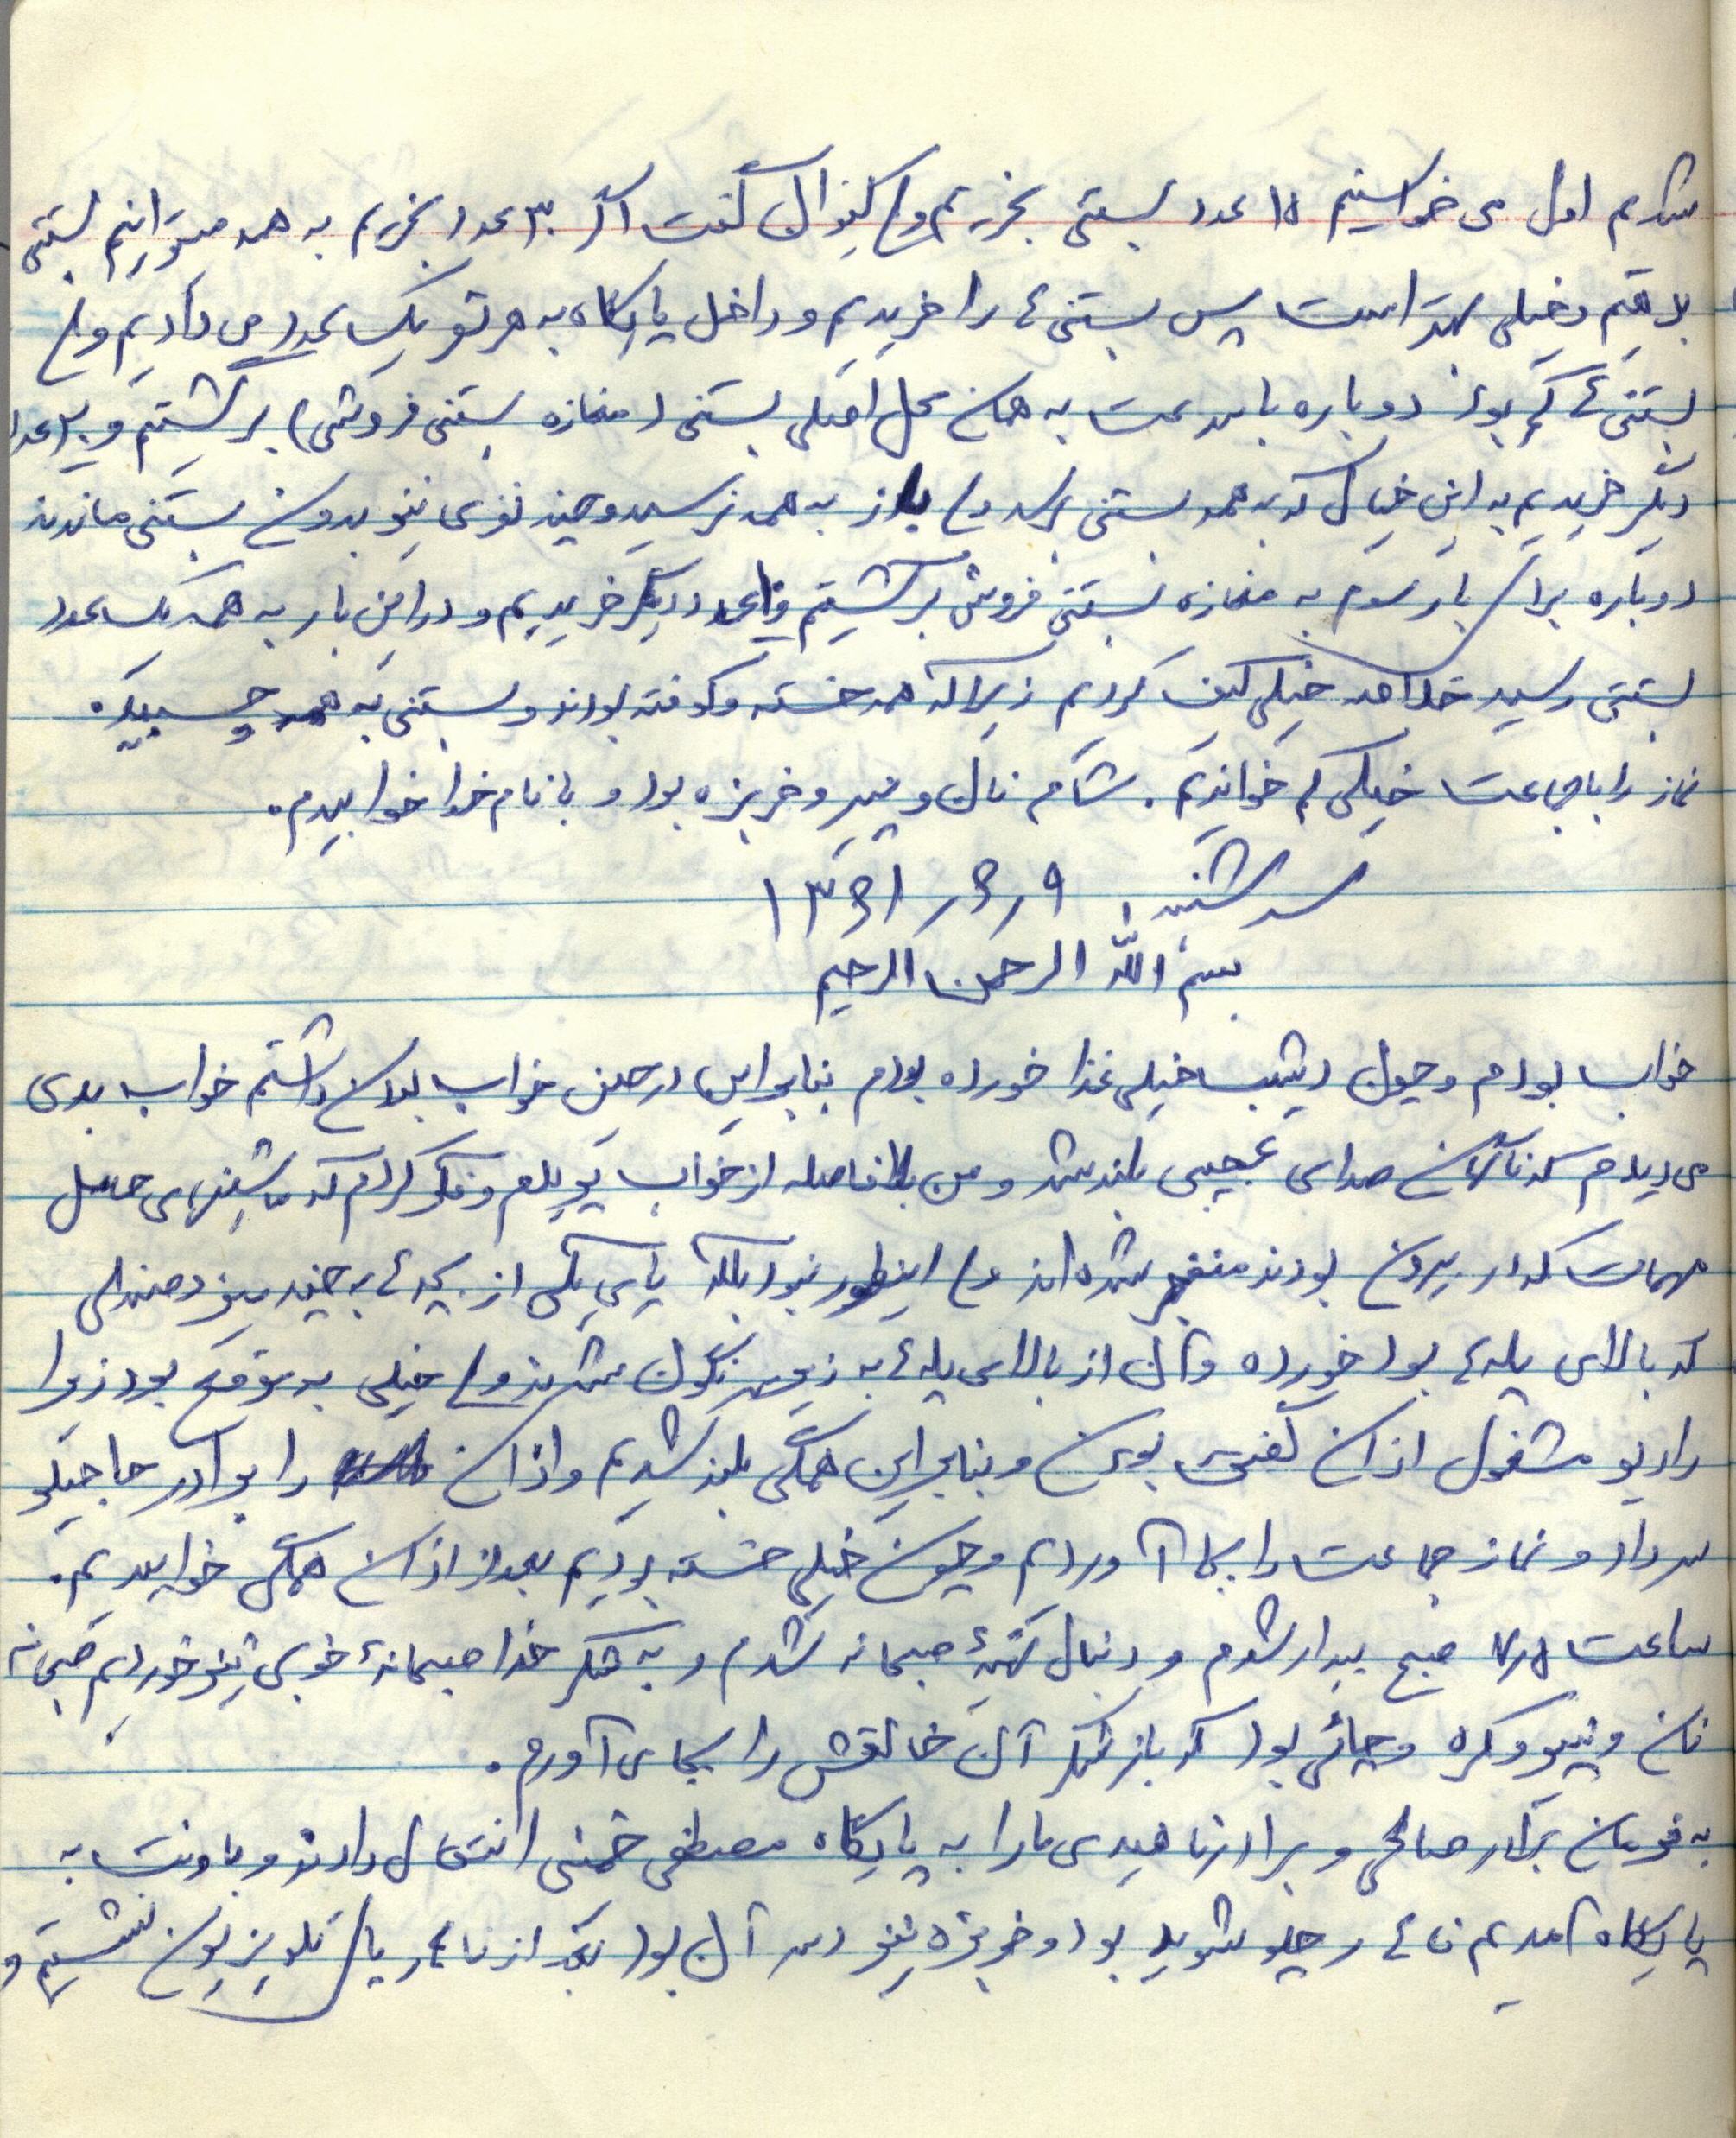 شدیم اول می خواستیم ۱۵ عدد بستنی بخریم ولی گفت اگر ۳۰ عدد بخریم به همه میتوانیم بستنی
بدهیم و خیلی بهتر است پس بستنی ها را خریدیم و داخل پایگاه به هر نفر یک عدد می دادیم ولی
بستنی ها کم بود دوباره با سرعت به همان محل اصلی بستنی (مغازه بستنی فروشی) برگشتیم و ۲۰ عدد
دیگر خریدیم به این خیال که به همه بستنی برسد ولی باز به همه نرسید و چند نفری نیز بدون بستنی ماندند
دوباره برای بار سوم به مغازه بستنی فروش برگشتیم و عدد دیگر خریدیم و در این بار به همه یک عدد
بستنی رسید خیلی کیف کردیم زیرا که همه خسته و کوفته بودند و بستنی به همه چسبید.
نماز را با جماعت خیلی کم خواندیم. شام نان و پنیر و خربزه بود و با نام خدا خوابیدم.
سه شنبه ۹ر۶ر۱۳۶۱
بسم الله الرحمن الرحیم
خواب بودم و چون دیشب خیلی غذا خورده بودم بنابراین در حین خواب داشتم خواب بدی
می دیدم که ناگهان صدای عجیبی بلند شد و من بلافاصله از خواب پریدم و فکر کردم که ماشینهای حامل
مهمات که در بیرون بودند منفجر شده اند ولی اینطور نبود بلکه پای یکی از بچه ها به چند میز و صندلی
که بالای پله ها بود خورده و آن از بالای پله ها به زمین نگون شدند ولی خیلی به موقع بود زیرا
رادیو مشغول اذان گفتن بود و بنابراین همگی بلند شدیم و اذان را برادر حاجیلو
سرداد و نماز جماعت را بجا آوردیم و چون خیلی خسته بودیم بعد از اذان همگی خوابیدیم.
ساعت ۷ر۵ صبح بیدار شدم و دنبال تهیۀ صبحانه شدم و به شکر خدا صبحانۀ خوبی نیز خوردیم صبحانه
نان و پنیر و کره و چائی بود که باز شکر آن خالقش را بجای آورم.
به فرمان برادر صالحی و برادر ناهیدی ما را به پایگاه مصطفی خمینی انتقال دادند و با وانت به
پایگاه آمدیم ناهار چلو شوید بود و خربزه نیز دسر آن بود بعد از ناهار پای تلویزیون نشستیم و